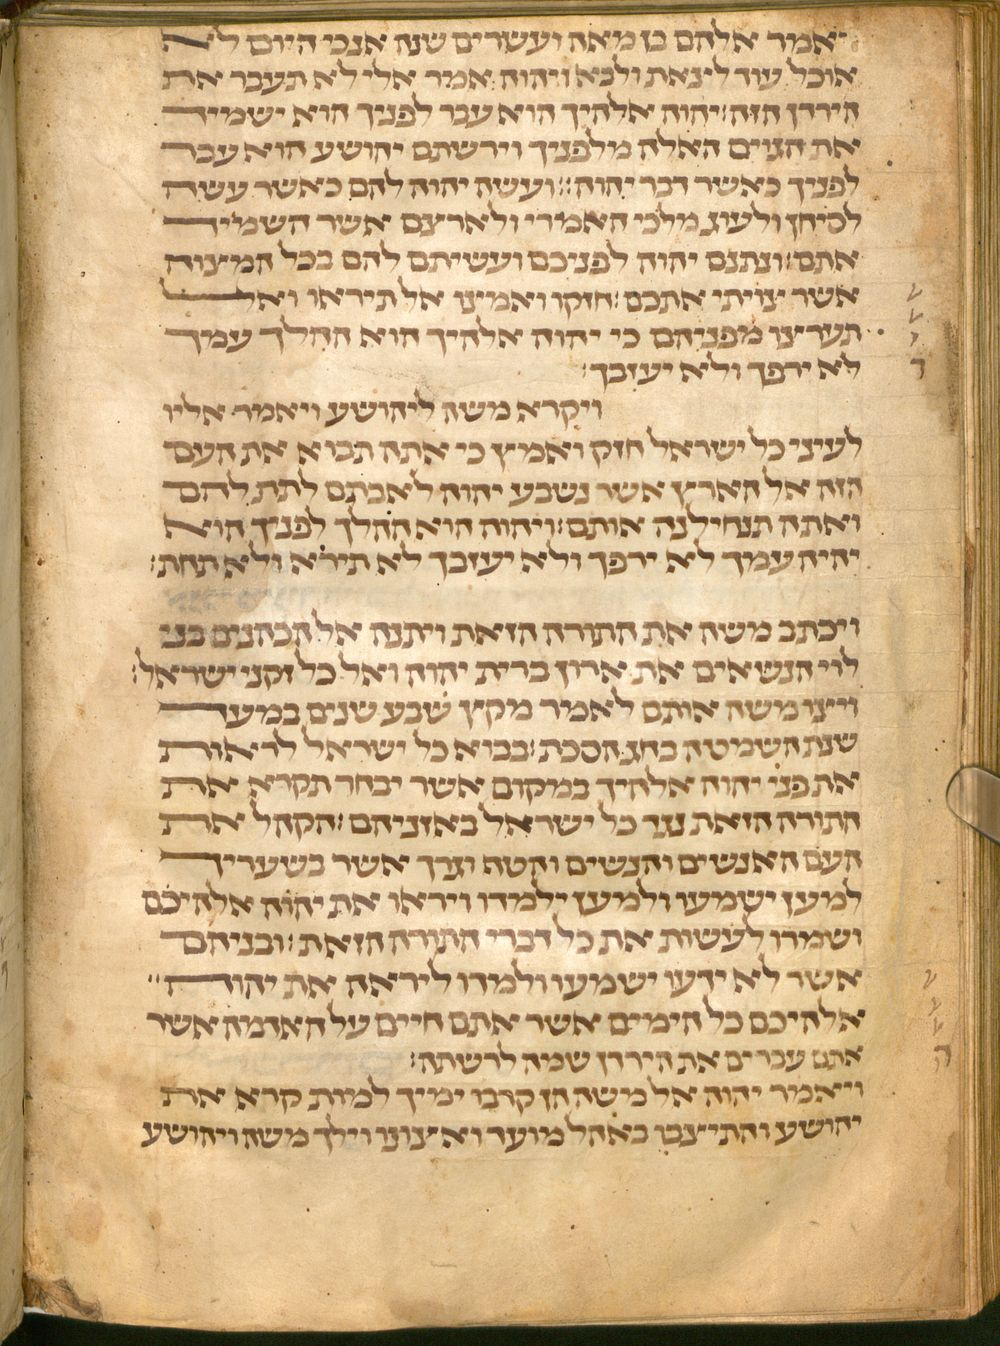 ויאמר אלהם בן מאה ועשרים שנה אנכי היום לא
אוכל עוד לצאת ולבא ויהוה אמר אלי לא תעבר את
הירדן הזה׃ יהוה אלהיך הוא עבר לפניך הוא ישמיד
את הגוים האלה מלפניך וירשתם יהושע הוא עבר
לפניך כאשר דבר יהוה׃ ועשה יהוה להם כאשר עשה
לסיחן ולעוג מלכי האמרי ולארצם אשר השמיד
אתם׃ ונתנם יהוה לפניכם ועשיתם להם ככל המצוה
אשר צויתי אתכם׃ חזקו ואמצו אל תיראו ואל
תערצו מפניהם כי יהוה אלהיך הוא ההלך עמך
לא ירפך ולא יעזבך׃
ויקרא משה ליהושע ויאמר אליו
לעיני כל ישראל חזק ואמץ כי אתה תבוא את העם
הזה אל הארץ אשר נשבע יהוה לאבתם לתת להם
ואתה תנחילנה אותם׃ ויהוה הוא ההלך לפניך הוא
יהיה עמך לא ירפך ולא יעזבך לא תירא ולא תחת׃
ויכתב משה את התורה הזאת ויתנה אל הכהנים בני
לוי הנשאים את ארון ברית יהוה ואל כל זקני ישראל׃
ויצו משה אותם לאמר מקץ שבע שנים במעד
שנת השמטה בחג הסכת׃ בבוא כל ישראל לראות
את פני יהוה אלהיך במקום אשר יבחר תקרא את
התורה הזאת נגד כל ישראל באזניהם׃ הקהל את
העם האנשים והנשים והטף וגרך אשר בשעריך
למען ישמעו ולמען ילמדו ויראו את יהוה אלהיכם
ושמרו לעשות את כל דברי התורה הזאת׃ ובניהם
אשר לא ידעו ישמעו ולמדו ליראה את יהוה
אלהיכם כל הימים אשר אתם חיים על האדמה אשר
אתם עברים את הירדן שמה לרשתה׃
ויאמר יהוה אל משה הן קרבו ימיך למות קרא את
יהושע והתיצבו באהל מועד ואצונו וילך משה ויהושע